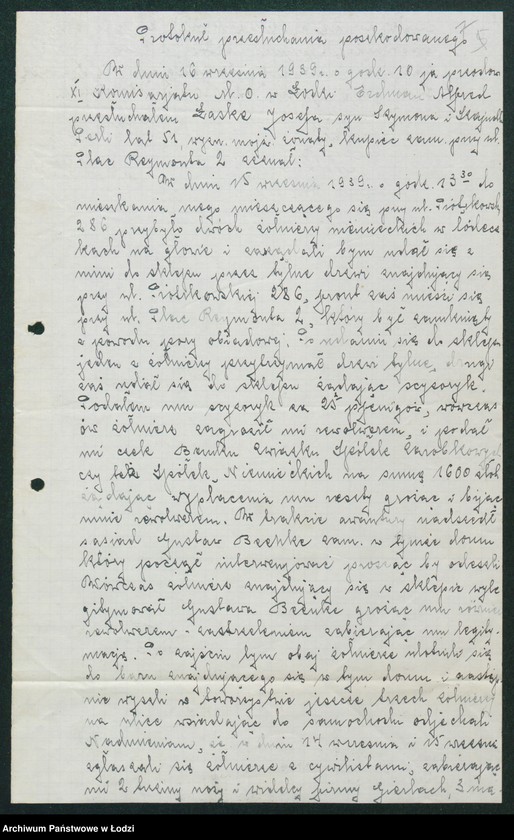 Protokuł przesłuchania poszkodowanego
W dniu 16 września 1939 r. o godz. 10 ja przodow.
XI Komisarjatu M.O. w Łodzi Erdman Alfred
przesłuchałem Laske Josefa, syn Szymona i
Perli lat 51 wyzn. mojż. żonaty, kupiec zam. przy ul.
Plac Reymonta 2 zeznał:
W dniu 15 września 1939 r. o godz. 13³⁰ do
mieszkania mego mieszczącego się przy ul. Piotrkowsk.
286 przybyło dwóch żołnierzy niemieckich w łódecz-
kach na głowie i zarządali bym udał się z
nimi do sklepu przez tylne drzwi znajdujący się
przy ul. Piotrkowskiej 286, front zaś mieści się
przy ul. Plac Reymonta 2, który był zamknięty
z powodu pory obiadowej. Po udaniu się do sklepu
jeden z żołnierzy przytrzymał drzwi tylne, drugi
zaś udał się do sklepu żądając scyzoryk.
Podałem mu scyzoryk za 25 pfenigów, wówczas
ów żołnierz zagroził mi rewolwerem, i podał
mi czek Banku Związku Spółek Zarobkowych
czy też Spółek Niemieckich na sumę 1600 złot
żądając wypłacenia mu reszty grożąc i bijąc
mnie rewolwerem. W trakcie awantury nadszedł
sąsiad Gustaw Bethke zam. w tymże domu
który począł interwenjować prosząc by odeszli
Wówczas żołnierz znajdujący się w sklepie wyle-
gitymował Gustawa Bethke grożąc mu również
rewolwerem - zastrzeleniem zabierając mu legity-
mację. Po zajściu tym obaj żołnierze ulotnili się
do baru znajdującego się w tym domu i następ-
nie wyszli w towarzystwie jeszcze trzech żołnierzy
na ulicę wsiadając do samochodu odjechali
Nadmieniam, że w dniu 14 września i 15 wrześn.
zgłaszali się żołnierze z cywilistami, zabierając
mi 2 tuziny noży i widelcy firmy Gerlach, 3